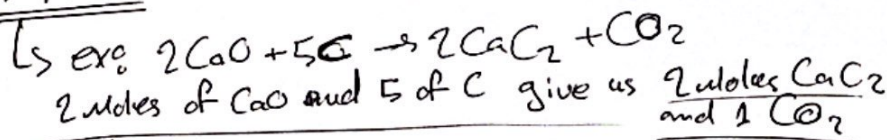 ↳ exo: 2CaO + 5C → 2CaC₂ + CO₂
2 Moles of CaO and 5 of C give us 2 moles CaC₂
and 1 CO₂